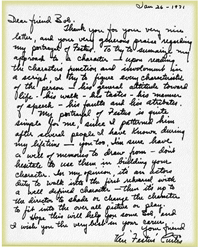 Jan 26 - 1971
Dear friend Bob -
Thank you for your very nice
letter, and your very generous praise regarding
my portrayal of Festus. To try to summarize my
approach to a character - upon reading
the characters function and involvement in
a script, I try to figure every characteristic
of the person - his general attitude toward
life - his work - his tastes - his manner
of speech - his faults and his attributes.
My portrayal of Festus is quite
simple for me, since I patterned him
after several people I have known during
my lifetime - you too, I'm sure have
a well of memories to draw from - don't
hesitate to use them in building your
character. In my opinion, it's an actors
duty to walk into the first rehearsal with
a well defined character - then it's up to
the director to shade or change the character
to fit into the over all picture or play.
Hope this will help you some Bob, and
I wish you the very best in your career.
your friend
Ken "Festus" Curtis